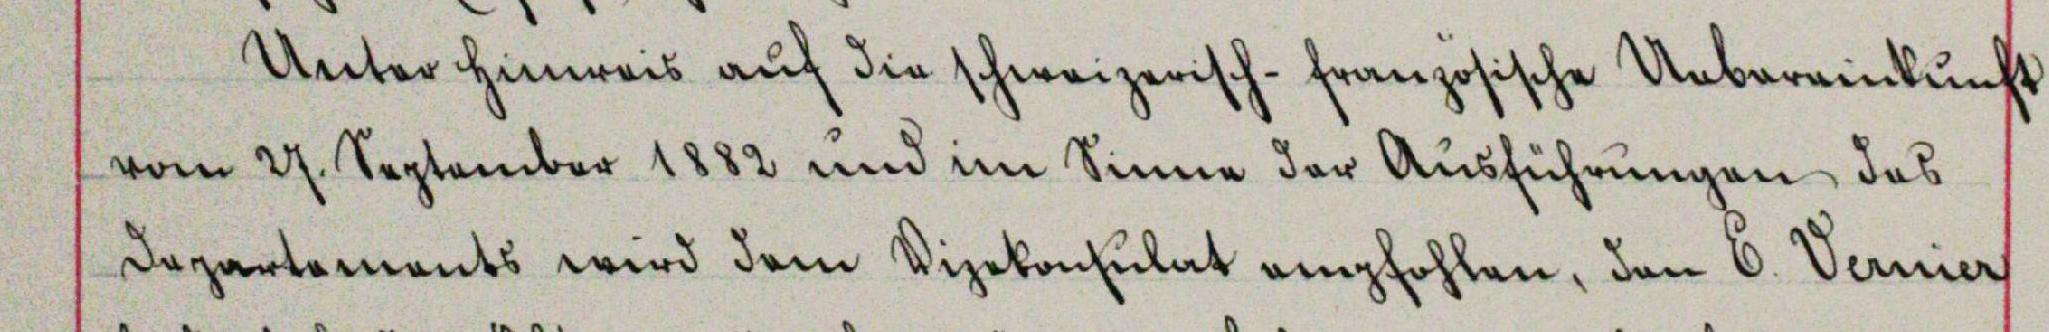 Unter Hinweis auf die schweizerisch-französische Uebereinkunft
vom 27. September 1882 und im Sinne der Ausführungen des
Departements wird dem Vizekonsulat empfohlen, den E. Vernier